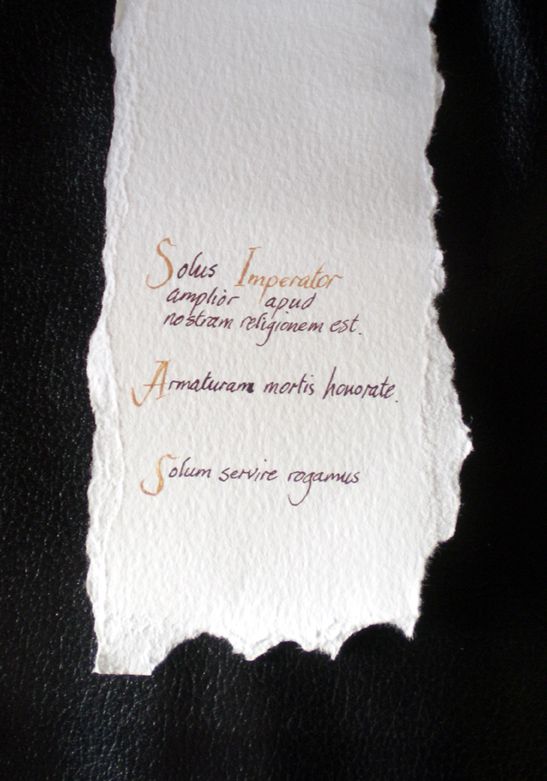 Solus Imperator
amplior apud
nostram religionem est.
Armaturam mortis honorate.
Solum servire rogamus